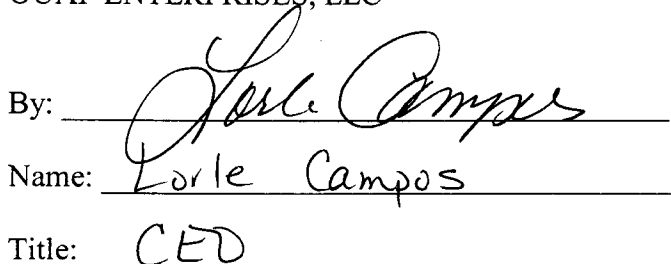 ENTERPRISES, LLC
By: Lorle Campos
Name: Lorle Campos
Title: CEO